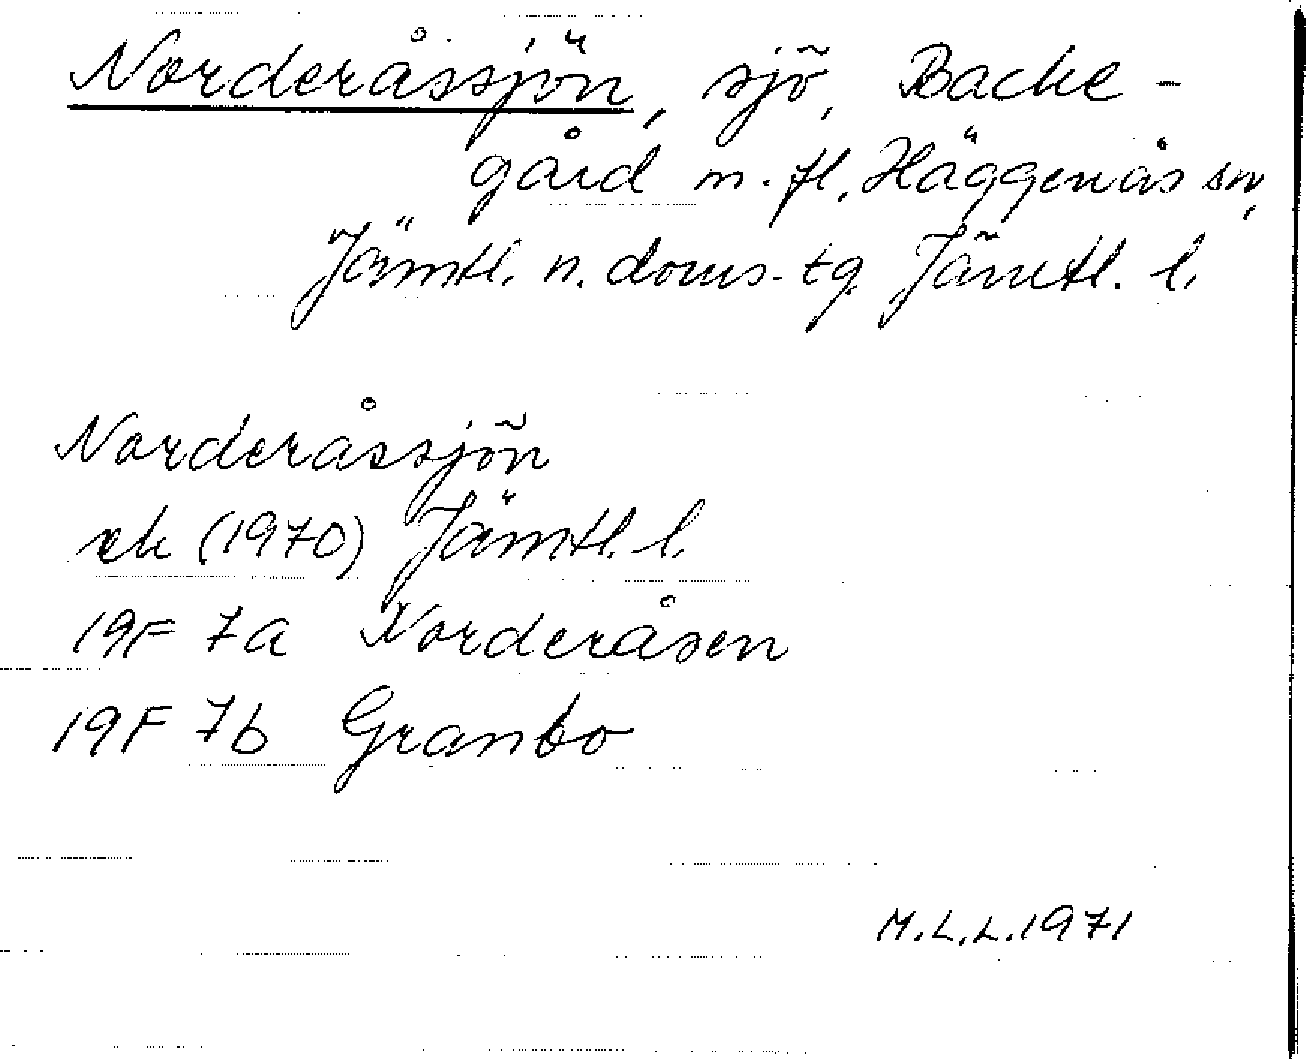 Norderåssjön, sjö, Backe-
gård m. fl., Häggenås sn,
Jämtl. n. doms. tg Jämtl. l.
Norderåssjön
ek (1970) Jämtl. l.
19F 7a Norderåsen
19F 7b Granbo
M.L.L. 1971